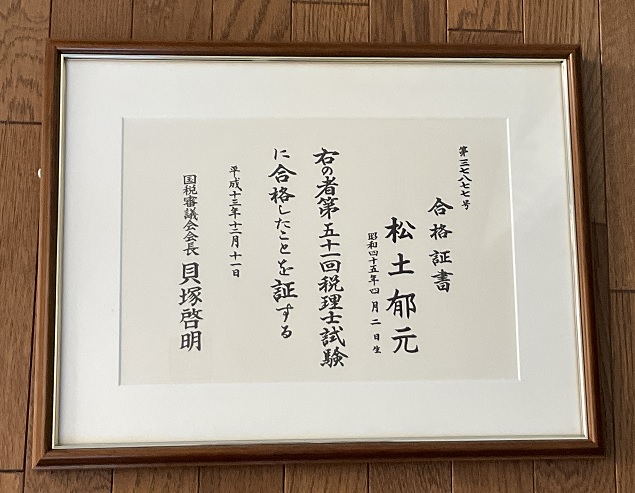 第三七八七七号
合格証書
松土郁元
昭和四十五年四月二日生
右の者第五十一回税理士試験
に合格したことを証する
平成十三年十二月十一日
国税審議会会長 貝塚啓明